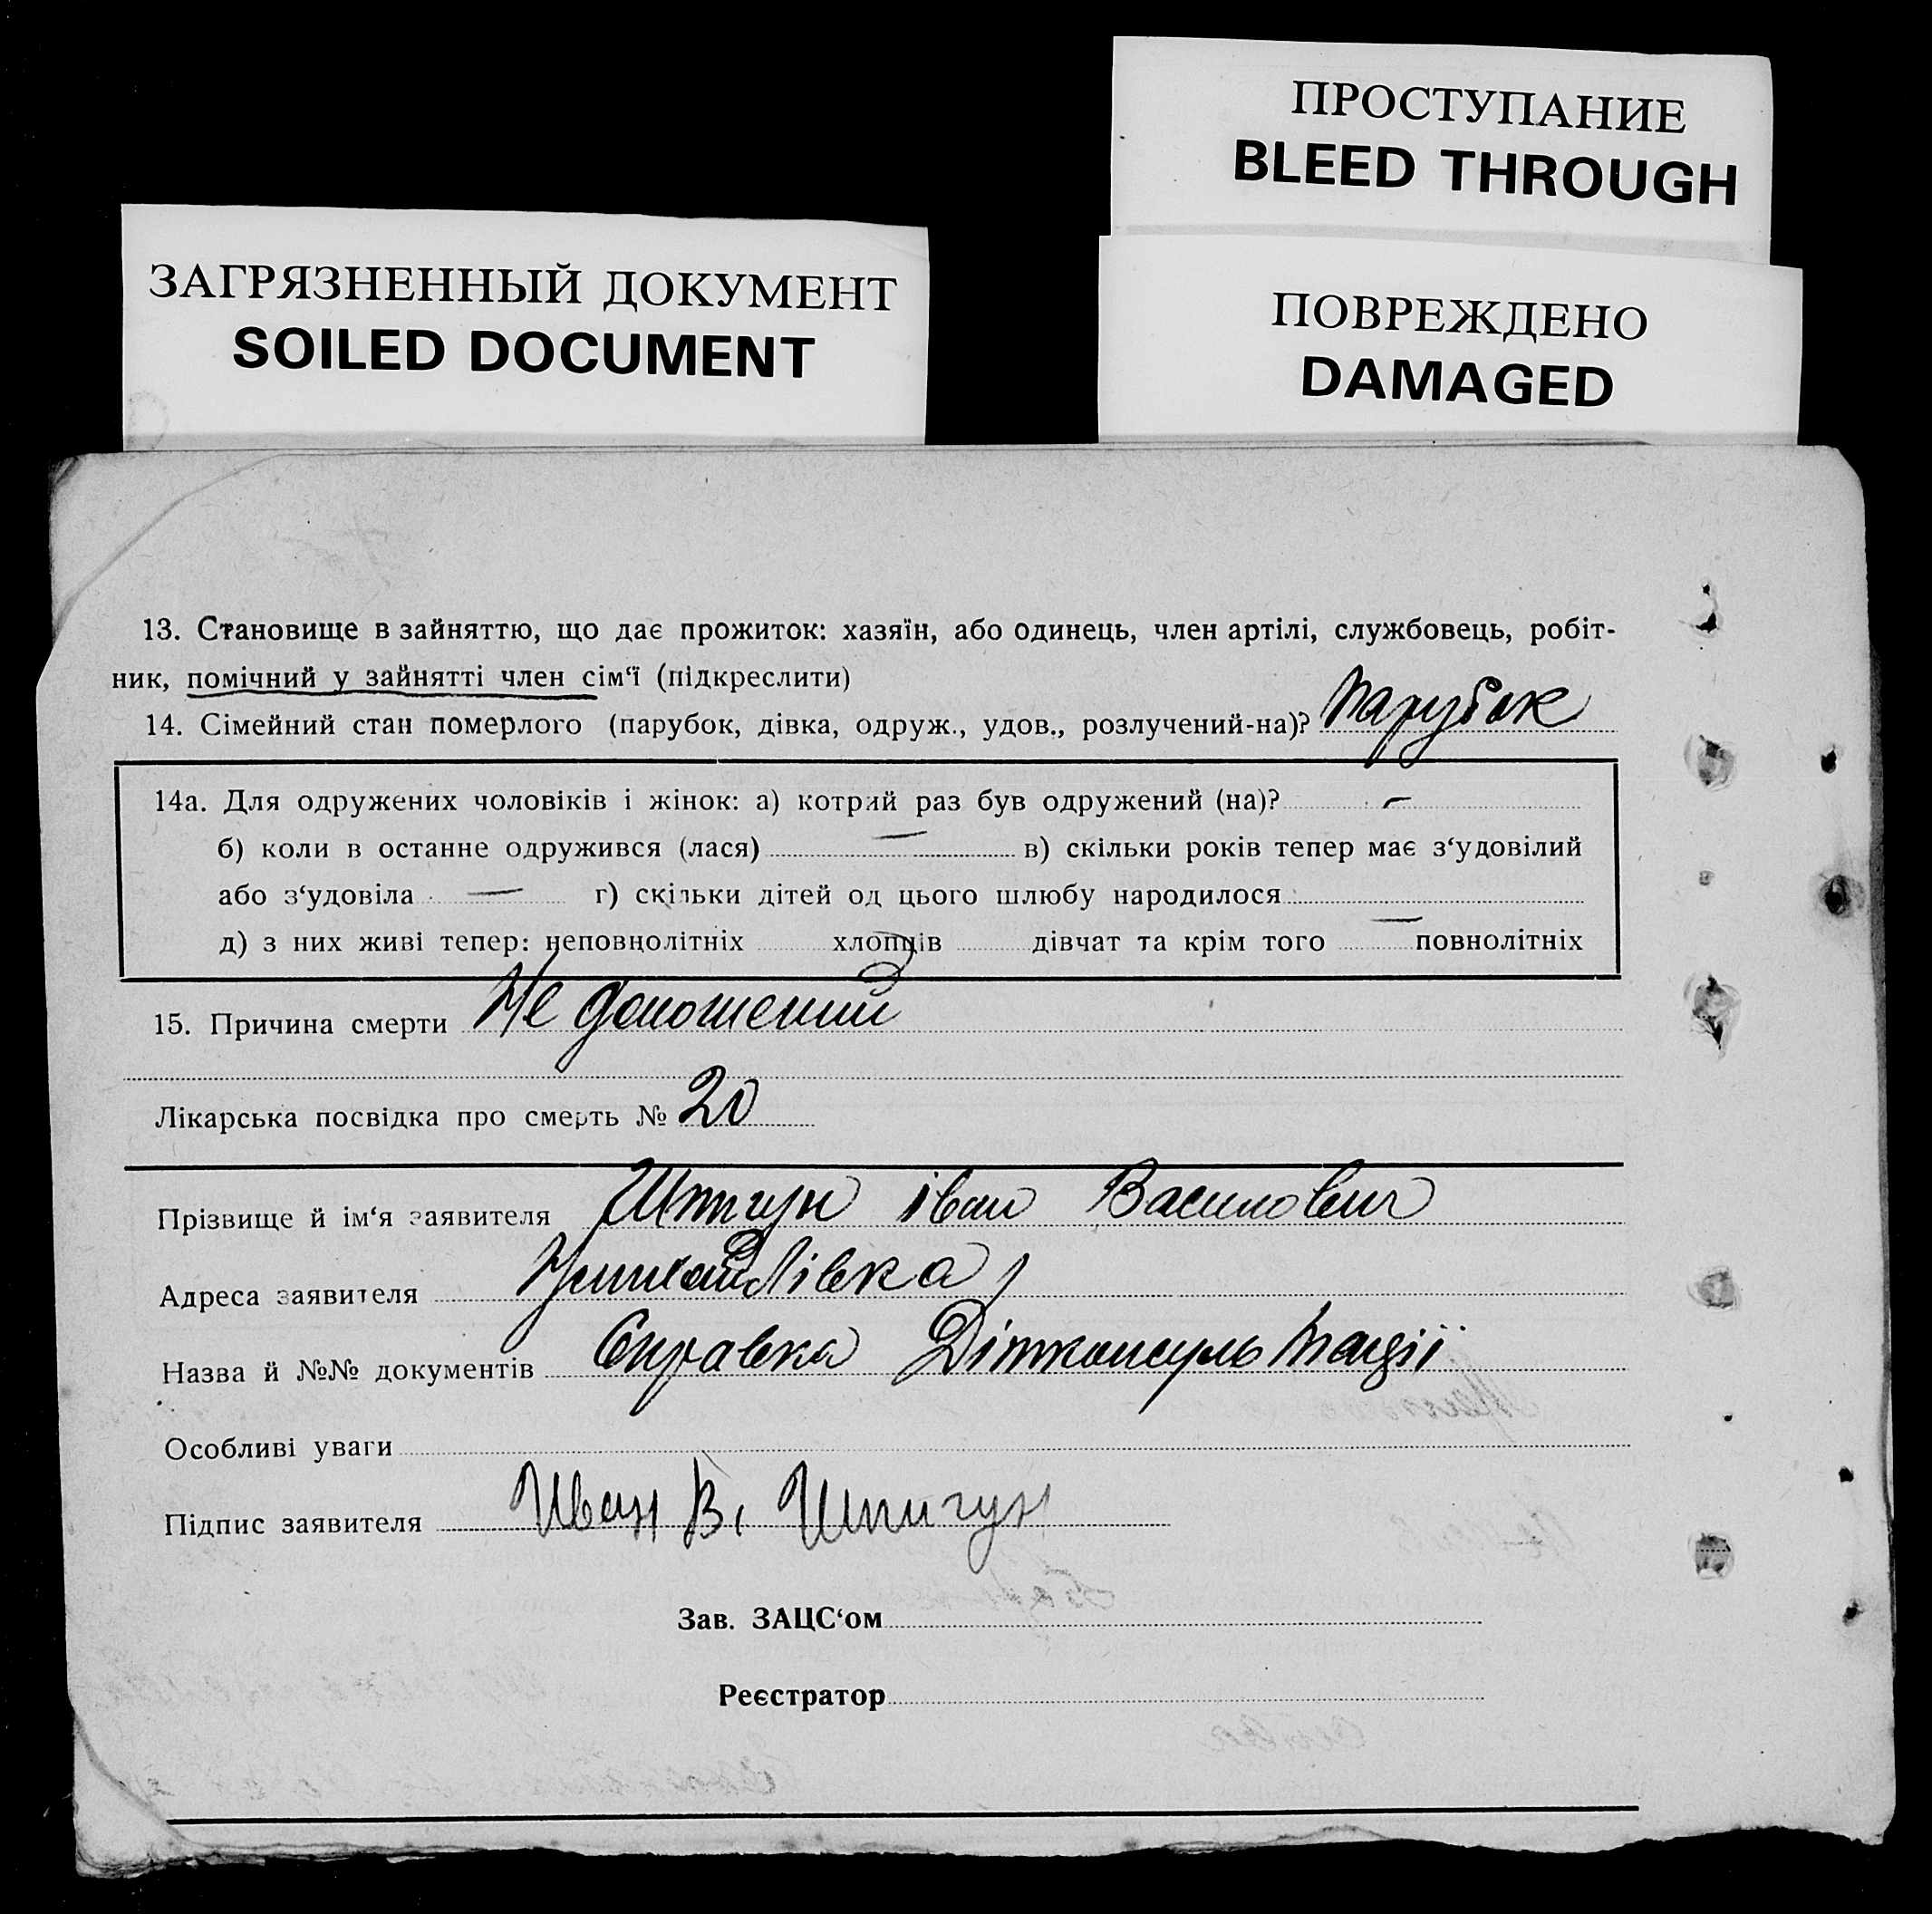 ПРОСТУПАНИЕ
BLEED THROUGH
ЗАГРЯЗНЕННЫЙ ДОКУМЕНТ
SOILED DOCUMENT
ПОВРЕЖДЕНО
DAMAGED
13. Становище в зайняттю, що дає прожиток: хазяїн, або одинець, член артілі, службовець, робіт-
ник, помічний у зайнятті член сім‘ї (підкреслити)
14. Сімейний стан померлого (парубок, дівка, одруж., удов., розлучений-на)? Парубок
14а. Для одружених чоловіків і жінок: а) котрий раз був одружений (на)? —
б) коли в останне одружився (лася) — в) скільки років тепер має з‘удовілий
або з‘удовіла — г) скільки дітей од цього шлюбу народилося
д) з них живі тепер: неповнолітніх хлопців дівчат та крім того — повнолітніх
15. Причина смерти Не доношений
Лікарська посвідка про смерть № 20
Прізвище й ім'я заявителя Шпигун Іван Василович
Адреса заявителя
Назва й №№ документів Справка Дітконсультації
Особливі уваги
Підпис заявителя Иван В. Шпигун
Зав. ЗАЦС‘ом
Реєстратор